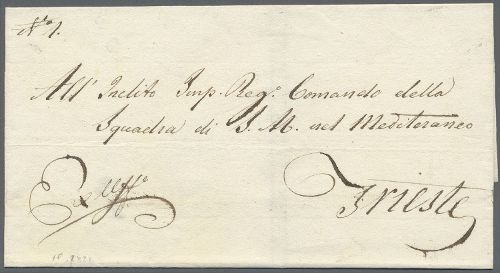 N.º 1.
All' Inclito Imp. Reg.º Comando della
Squadra di S. M. nel Mediteraneo
Ex Uff.º
Trieste